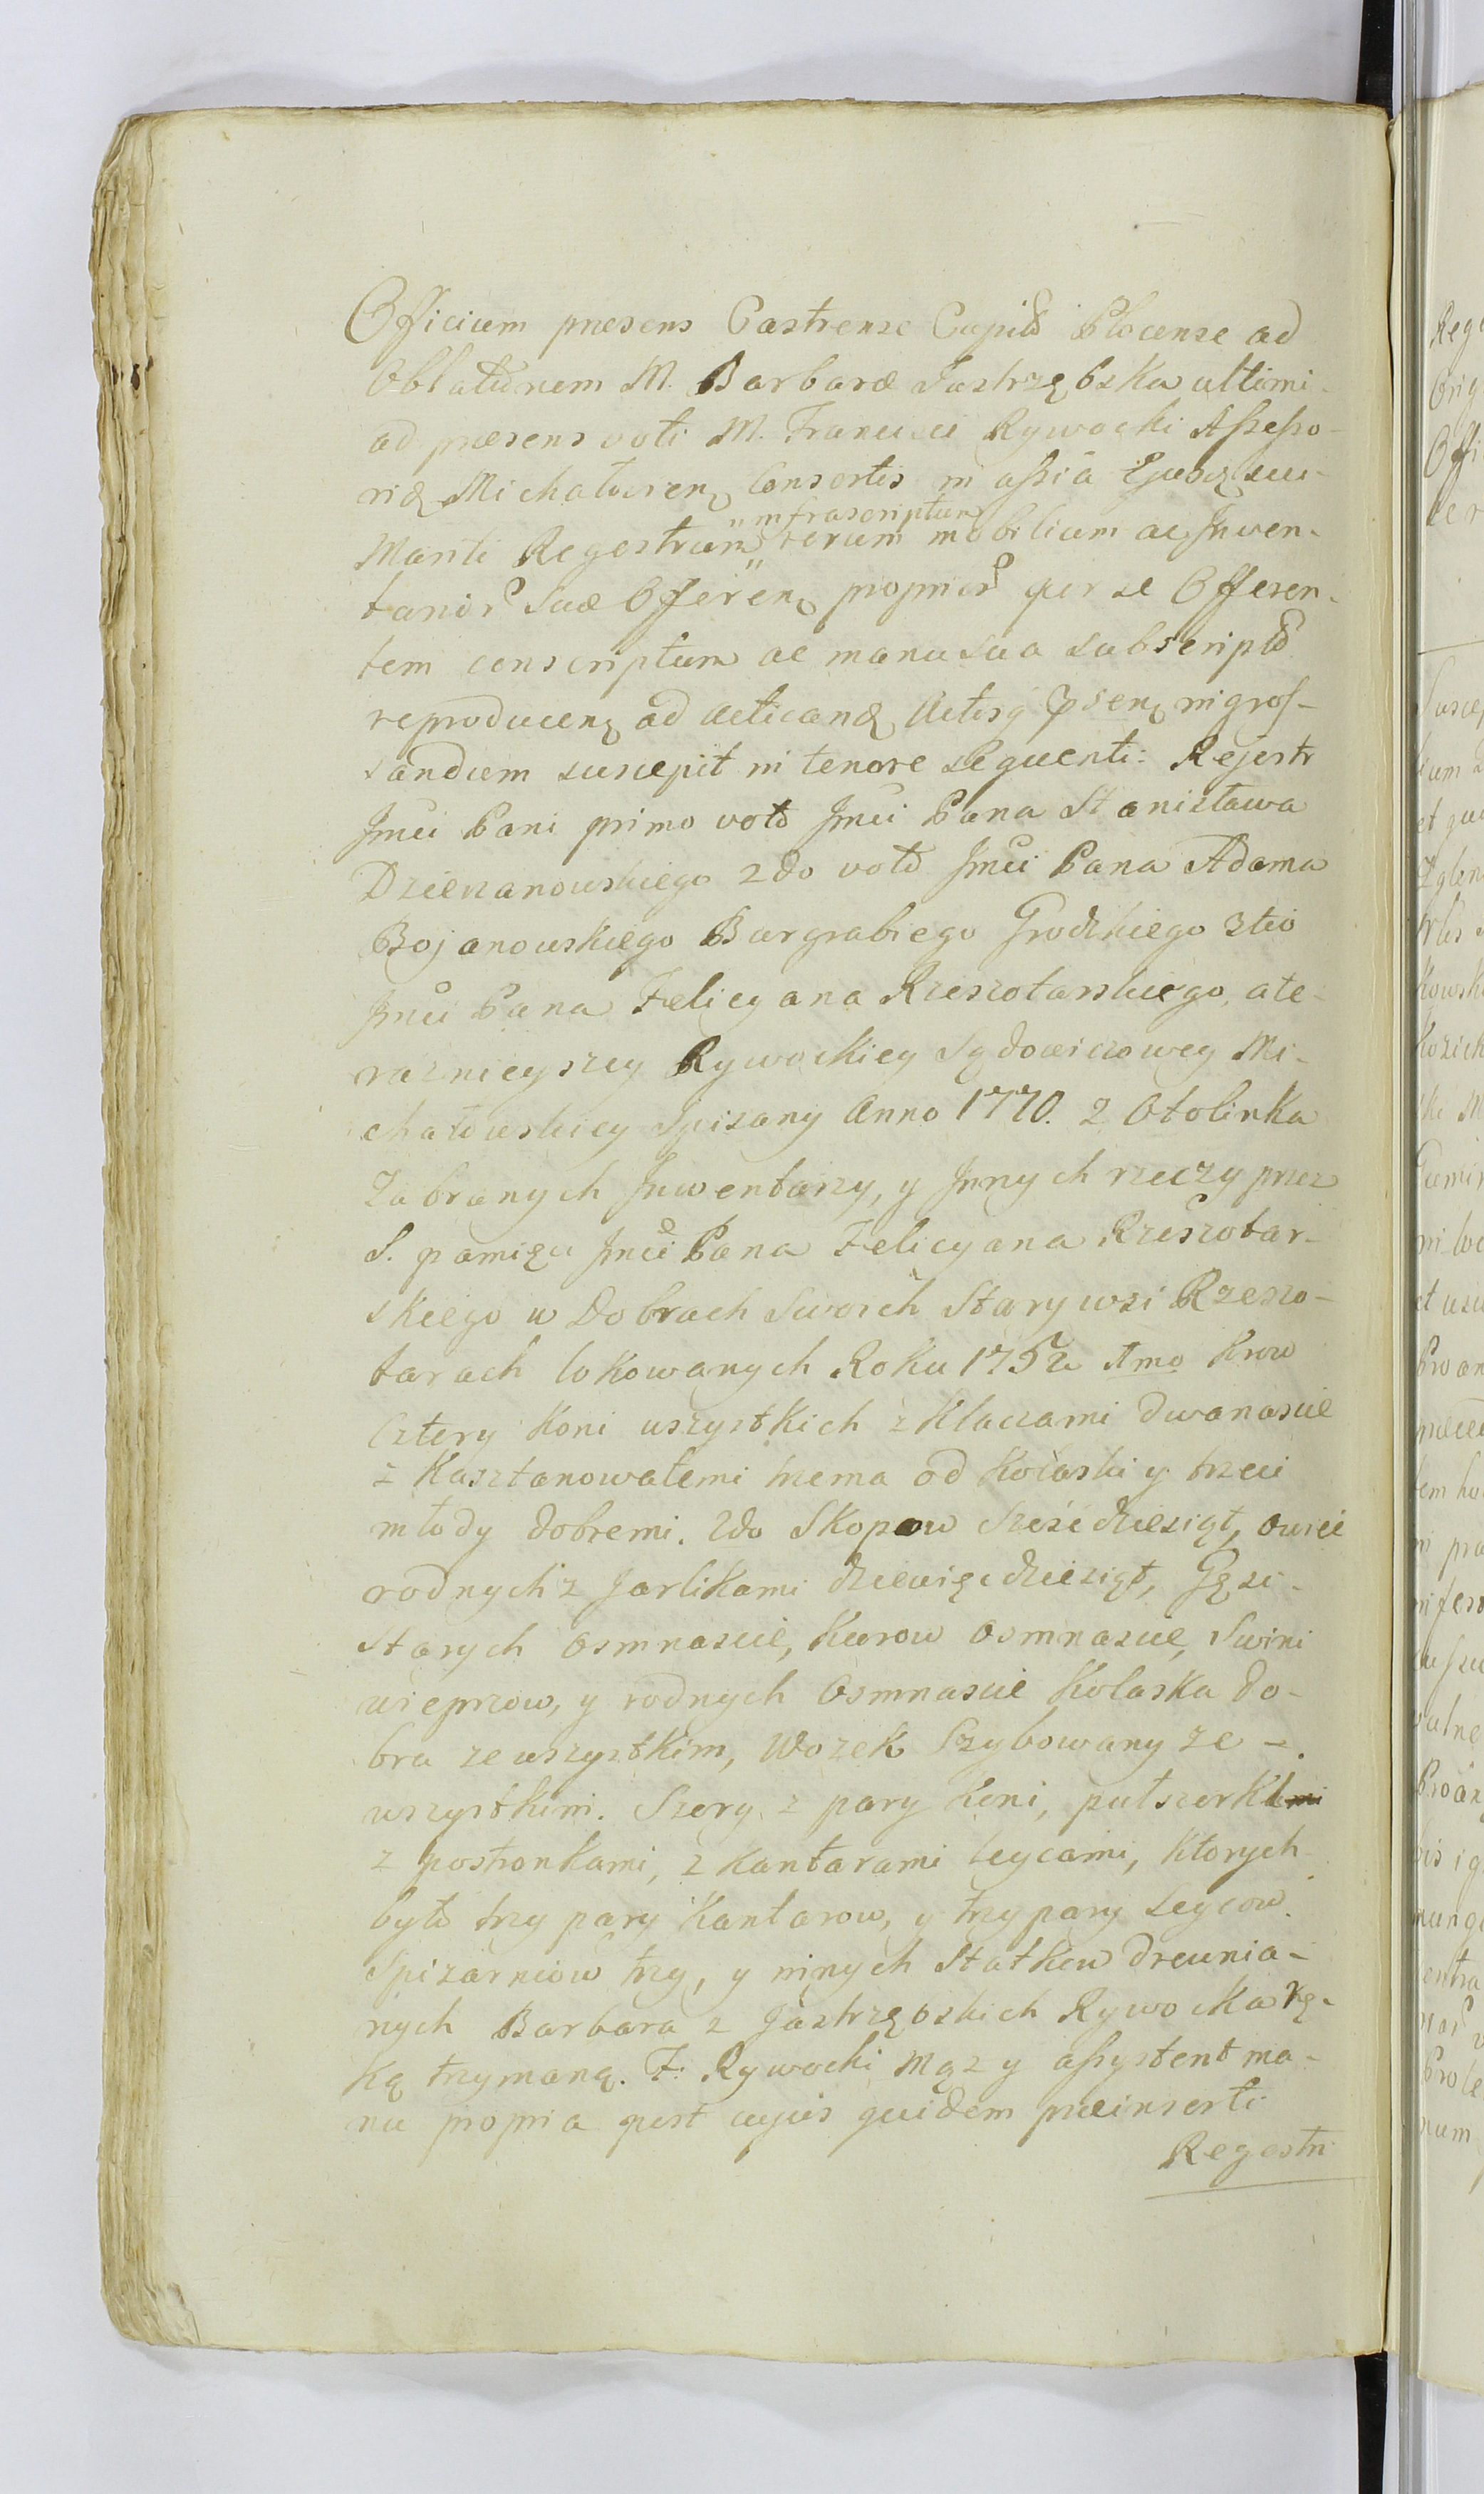 Officium præsens Castrense Capitło Płocense ad
Oblatunem M. Barbaræ Jastrzębska ultimi
ad præsens voti M. Francisci Rywocki Assesso-
riæ Michałovien Consortis in assia Ejusdz sui
infrascriptum
Mariti Regestrum rerum mobilium ac Inven-
tarior suæ Offeren proprior per se Offeren-
tem conscriptum ac manu sua subscriptū
reproducen ad acticand Actisq psen ingros-
sandum suscepit in tenore sequenti: Rejestr
Jmci Pani primo voto Jmci Pana Stanisława
Dzierzanowskiego 2do voto Jmci Pana Adama
Bojanowskiego Burgrabiego Grodzkiego 3tio
Jmci Pana Felicyana Rzeszotarskiego, a te-
raznieyszey Rywockiey Sędowiczowey Mi-
chałowskiey Spisany Anno 1770. z Otolinka
Zabranych Inwentarzy, y Innych rzeczy przez
S. pamięci Jmci Pana Felicyana Rzeszotar-
skiego w Dobrach Swoich Starywsi Rzeszo-
tarach lokowanych Roku 1752 1mo Krow
Cztery Koni wszystkich z Klaczami dwanascie
z Kasztanowatemi trzema od Kolaski y trzeci
młody dobremi. 2do Skopow Sześćdziesiąt, owiec
rodnych z Jarlikami dziewięćdziesiąt, Gęsi
Starych osmnascie, Kurow osmnascie, Swini
wieprzow, y rodnych Osmnascie Kolaska do-
bra ze wszystkim, Wozek Szybowany ze -
wszystkim. Szory z pary Koni, pułszorki
z postronkami, z Kantarami leycami, Ktorych
było trzy pary Kantarow, y trzy pary Leycow.
Spizarniow trzy, y innych Statkow drewnia-
nych Barbara z Jastrzębskich Rywocka rę-
ką trzymaną. F. Rywocki Mąz y assystent ma-
nu propria post cujus quidem præinserti
Regestri